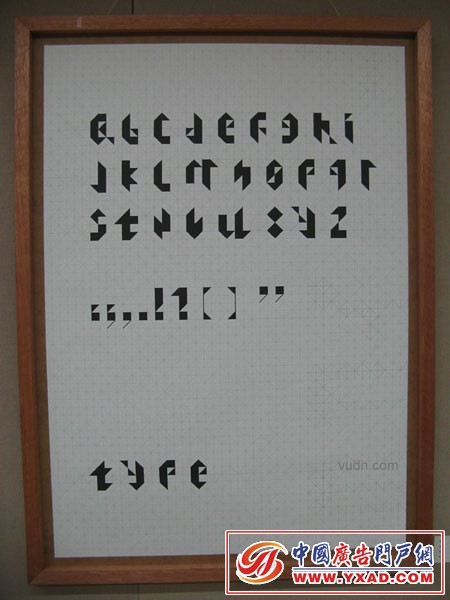 abcdefghi
jklmnopqr
stuvwxyz
:;,.!?[] ”
type
vudn.com
中國廣告門戶網
www.YXAD.com